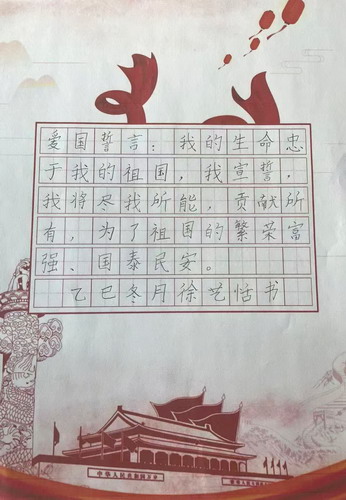 爱国誓言：我的生命忠
于我的祖国，我宣誓，
我将尽我所能，贡献所
有，为了祖国的繁荣富
强、国泰民安。
乙巳冬月徐艺恬书
中华人民共和国万岁